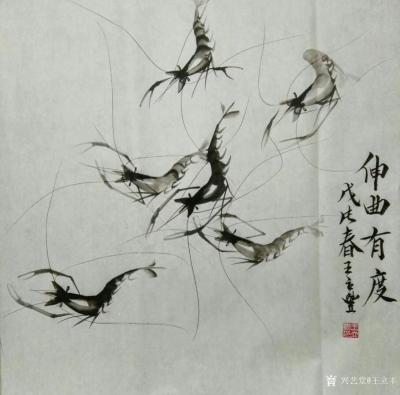 伸曲有度
戊戌春王立豐
兴艺堂@王立丰